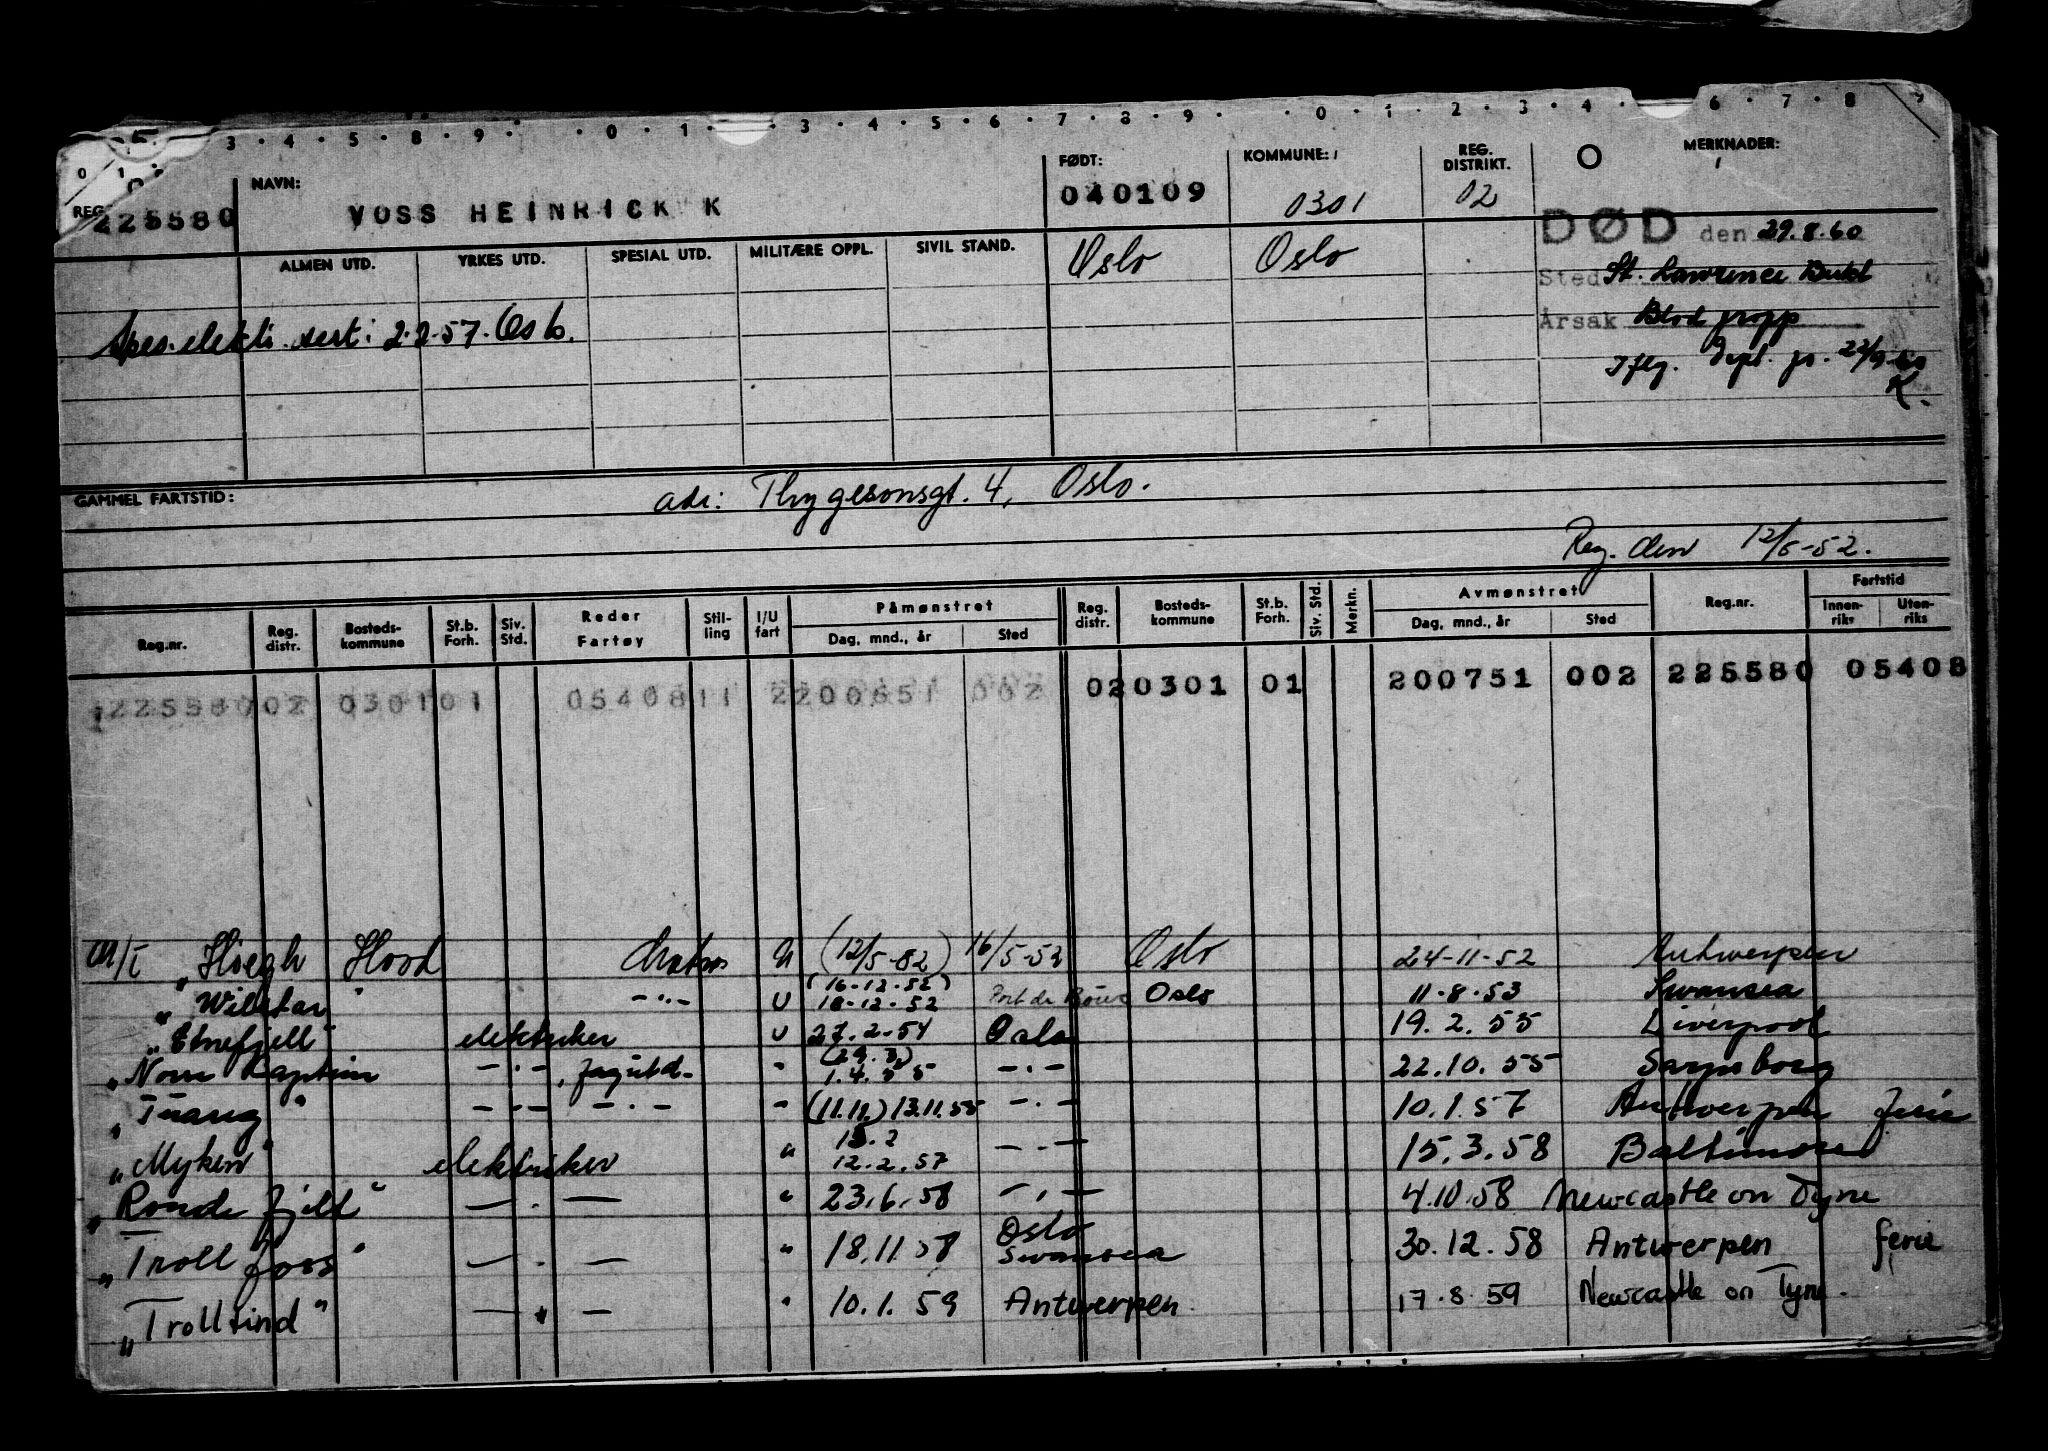 3 · 4 · 5 · 8 · 9 · · 0 · 1 · 3 · 4 · 5 · 6 · 7 · 8 · 9 · · 0 · 1 · 2 · 3 · 4 · 6 · 7 · 8
0 1
REG. NAVN: FØDT: KOMMUNE: REG. DISTRIKT. MERKNADER:
225580 VOSS HEINRICK K 040109 0301 02
ALMEN UTD. YRKES UTD. SPESIAL UTD. MILITÆRE OPPL. SIVIL STAND. Oslo Oslo DØD den 29.8.60
Sted St. Lawrence Bukt
Spes. elektr. sert: 2.2.57. Oslo. Årsak Blodpropp
Iflg. dept. js. 22/9-60
K.
GAMMEL FARTSTID: adr: Thygesonsgt. 4, Oslo.
Reg. den 12/5-52.
Reg.nr. Reg. distr. Bosteds-kommune St.b. Forh. Siv. Std. Reder Fartøy Stil-ling I/U fart Påmønstret Dag, mnd., år Sted Reg. distr. Bosteds-kommune St.b. Forh. Siv. Std. Merkn. Avmønstret Dag, mnd., år Sted Reg.nr. Fartstid Innen-riks Uten-riks
22558002 030101 0540811 2200651 002 020301 01 200751 002 225580 05408
M/T "Høegh Hood Matros U (12/5-52) 16/5-52 Oslo 24-11-52 Antwerpen
(16-12-52)
" Wilstar" —"— U 18-12-52 Port de Bouc Oslo 11.8.53 Swansea
"Etnefjell" elektriker U 27.2.54 Oslo 19.2.55 Liverpool
(29.3.)
"Norse Captain —"—, faqutd- " 1.4.55 —"— 22.10.55 Sarpsborg
"Tuareg" —"— —"— " (11.11.) 13.11.55 —"— 10.1.57 Antwerpen ferie
"Myken" elektriker " 12.2.57 —"— 15.3.58 Baltimore
"Rondefjell" —"— " 23.6.58 —"— 4.10.58 Newcastle on Tyne
Oslo
"Trollfoss" —"— " 18.11.58 Swansea 30.12.58 Antwerpen ferie
"Trolltind" —"— " 10.1.59 Antwerpen 17.8.59 Newcastle on Tyne.